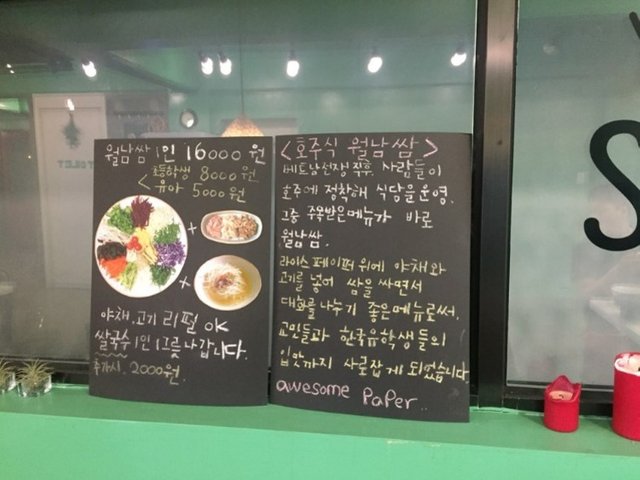 월남쌈 1인 16000원
초등학생 8000원
유아 5000원
+
+
야채, 고기 리필 OK
쌀국수 1인 1그릇 나갑니다.
추가시, 2000원.
<호주식 월남쌈>
베트남전쟁직후, 사람들이
호주에 정착해 식당을 운영.
그중 주목받은메뉴가 바로
월남쌈.
라이스 페이퍼 위에 야채와
고기를 넣어 쌈을 싸면서
대화를 나누기 좋은메뉴로써,
교민들과 한국유학생들의
입맛까지 사로잡게 되었습니다.
awesome PaPer..
S